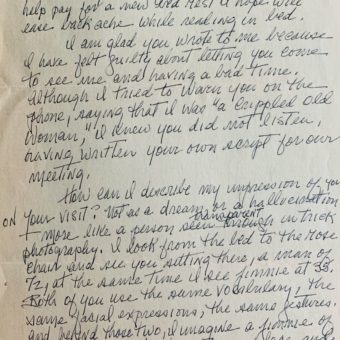 help pay for a new bed rest I hope will
ease back ache while reading in bed.
I am glad you wrote to me because
I have felt guilty about letting you come
to see me and having a bad time.
Although I tried to warn you on the
phone, saying that I was "a crippled old
woman," I knew you did not listen,
having written your own script for our
meeting.
How can I describe my impression of you
ON your visit? Not as a dream, or a hallucination
transparent
more like a person seen through in trick
photography. I look from the bed to the Rose
chair and see you sitting there, a man of
72, at the same time I see Jimmie at 35.
Both of you use the same vocabulary, the
same facial expressions, the same gestures.
And behind those two, I imagine a Jimmie of